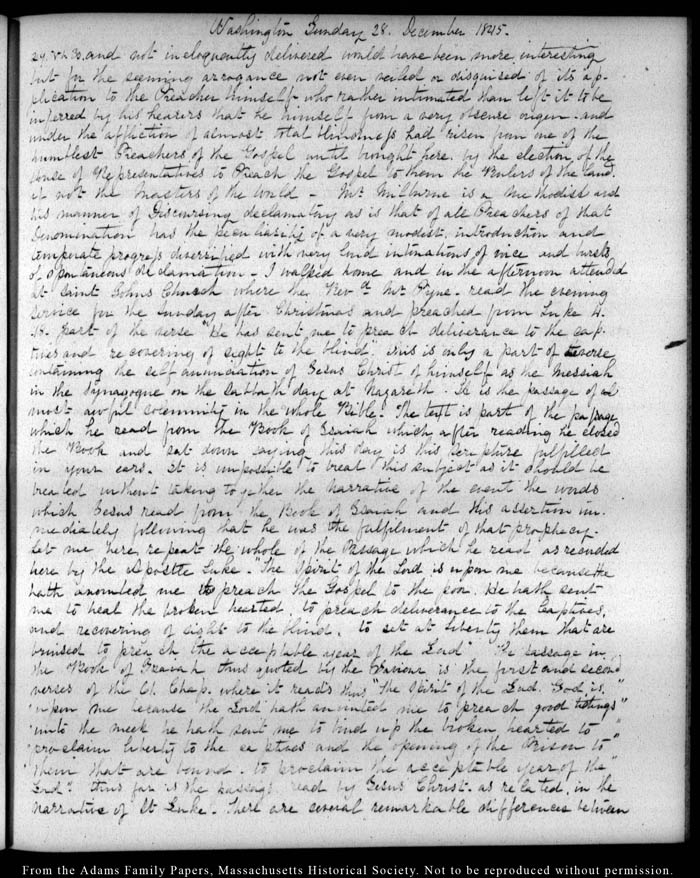 Washington Sunday 28. December 1845.
29. & 30. and not ineloquently delivered would have been more interesting
but for the seeming arrogance not even veiled or disguised of its ap-
plication to the Preacher himself who rather intimated than left it to be
inferred by his hearers that he himself from a very obscure origin and
under the affliction of almost total blindness had risen from one of the
humblest Preachers of the Gospel until brought here by the election of the
House of Representatives to Preach the Gospel to them the Rulers of the land,
if not the Masters of the World – Mr Milburne is a Methodist and
his manner of Discoursing declamatory as is that of all Preachers of that
Denomination has the peculiarity of a very modest introduction and
temperate progress diversified with very loud intonations of voice and bursts
of spontaneous declamation – I walked home and in the afternoon attended
at Saint Johns Church where the Revd. Mr Pyne read the evening
service for the Sunday after Christmas and preached from Luke 4.
18. part of the verse "He has sent me to preach deliverance to the cap-
tives and recovering of sight to the blind" This is only a part of verse
containing the self annunciation of Jesus Christ of himself as the Messiah
in the Synagogue on the Sabbath day at Nazareth. It is the passage of al
most awful solemnity in the whole Bible. The text is part of the passage
which he read from the Book of Isaiah which after reading he closed
the Book and sat down saying this day is this Scripture fulfilled
in your ears. It is impossible to treat this subject as it should be
treated without taking together the narrative of the event the words
which Jesus read from the Book of Isaiah and this assertion im-
mediately following that he was the fulfilment of that prophecy.
Let me here repeat the whole of the Passage which he read as recorded
here by the Apostle Luke. "The Spirit of the Lord is upon me because He
hath anointed me to preach the Gospel to the poor. He hath sent
me to heal the broken hearted, to preach deliverance to the Captives,
and recovering of sight to the blind, to set at liberty them that are
bruised to preach the acceptable year of the Lord" The passage in
the Book of Isaiah thus quoted by the Saviour is the first and second
verses of the 61. Chap. where it reads thus "the Spirit of the Lord God is
"upon me because the Lord hath anointed me to preach good tidings"
"unto the meek he hath sent me to bind up the broken hearted to"
"proclaim liberty to the captives and the opening of the Prison to"
"them that are bound. to proclaim the acceptable year of the"
Lord" thus far is the passage read by Jesus Christ as related in the
narrative of St Luke. There are several remarkable differences between
From the Adams Family Papers, Massachusetts Historical Society. Not to be reproduced without permission.